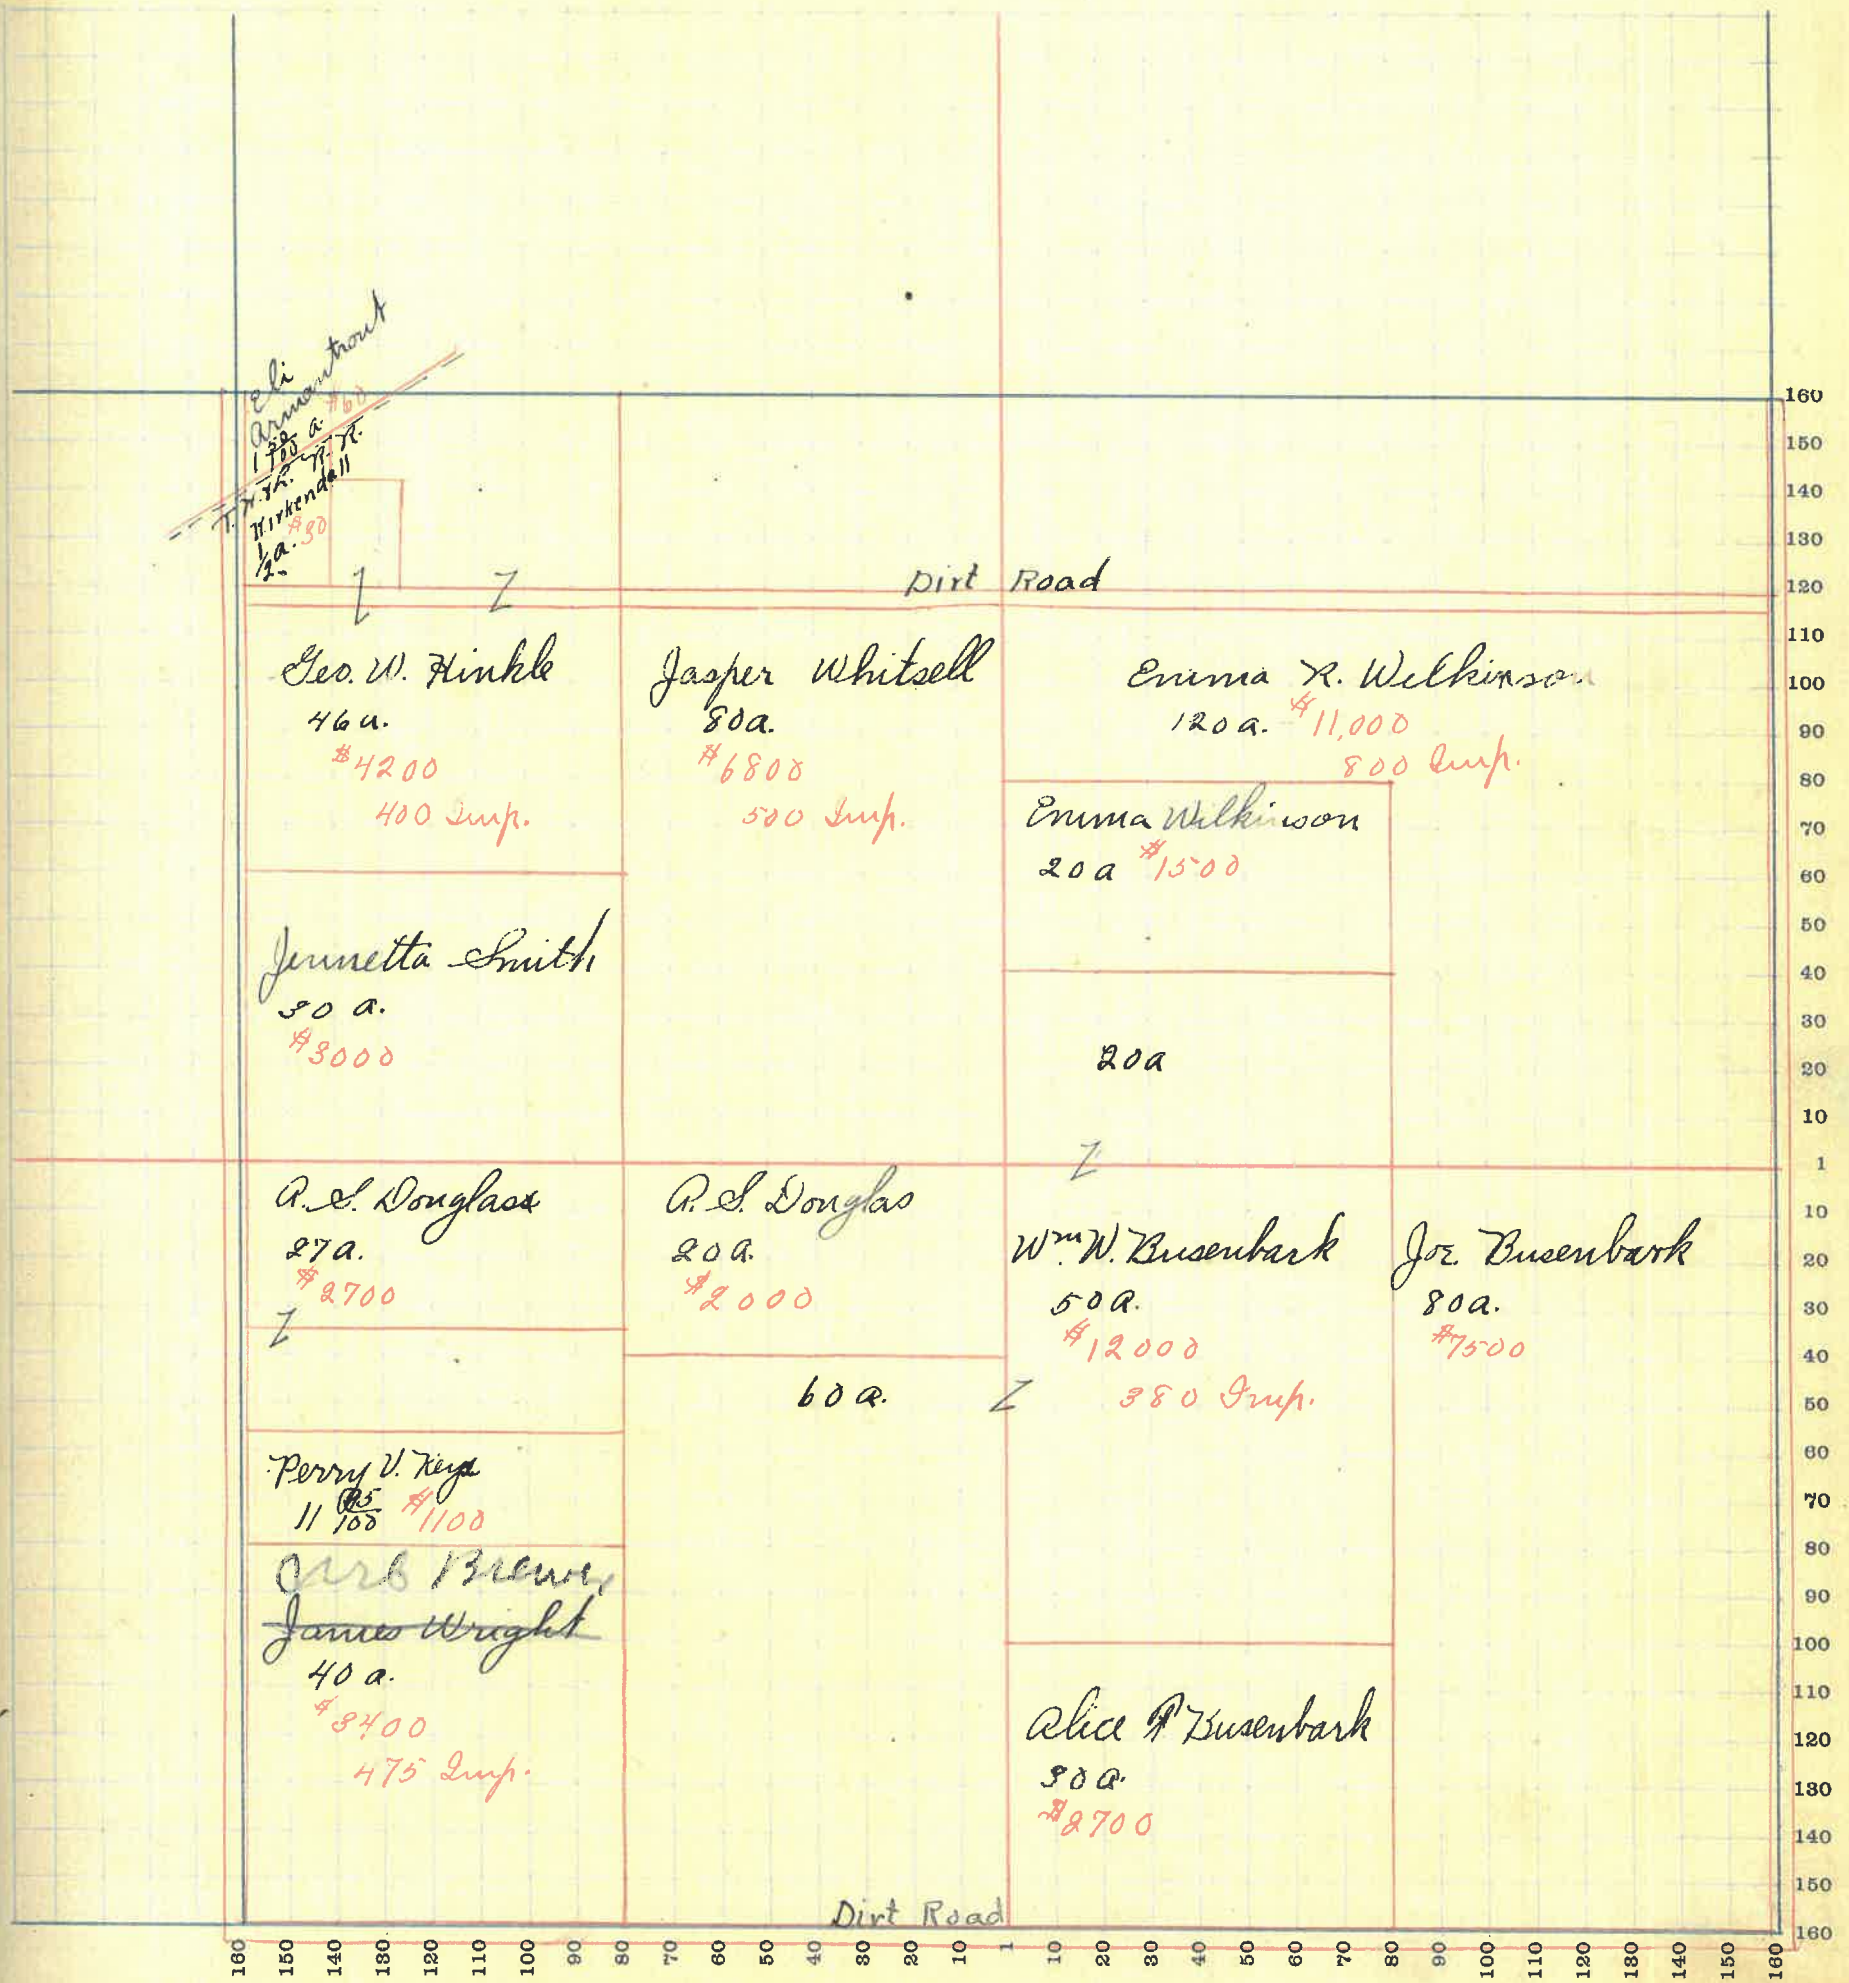 Eli
Armantrout
1 50/100 a. $60
T. H. & L. R. R.
Kirkendall
$30
1/2 a.
Dirt Road
Geo. W. Hinkle
46 a.
$4200
400 Imp.
Jasper Whitsell
80 a.
$6800
500 Imp.
Emma R. Wilkinson
120 a. $11,000
800 Imp.
Emma Wilkinson
20 a $1500
Jennetta Smith
30 a.
$3000
20 a
A. S. Douglass
27 a.
$2700
A. S. Douglas
20 a.
$2000
Wm. W. Busenbark
50 a.
$12000
380 Imp.
Joe Busenbark
80 a.
$7500
60 a.
Perry V. Keys
11 95/100 $1100
Carb Brewer
James Wright
40 a.
$3400
475 Imp.
Alice F Busenbark
30 a.
$2700
Dirt Road
160
150
140
130
120
110
100
90
80
70
60
50
40
30
20
10
1
10
20
30
40
50
60
70
80
90
100
110
120
130
140
150
160
160 150 140 130 120 110 100 90 80 70 60 50 40 30 20 10 1 10 20 30 40 50 60 70 80 90 100 110 120 130 140 150 160